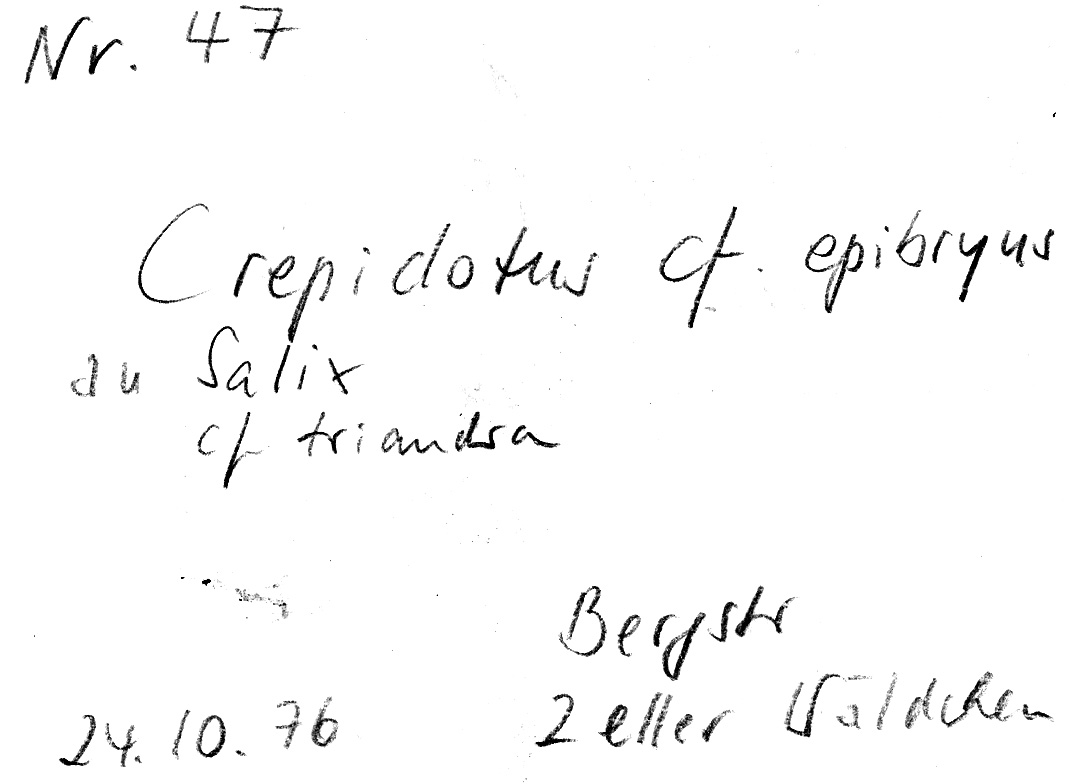 Nr. 47
Crepidotus cf. epibryus
an Salix
cf triandra
Bergstr
24.10.76 Zeller Wäldchen